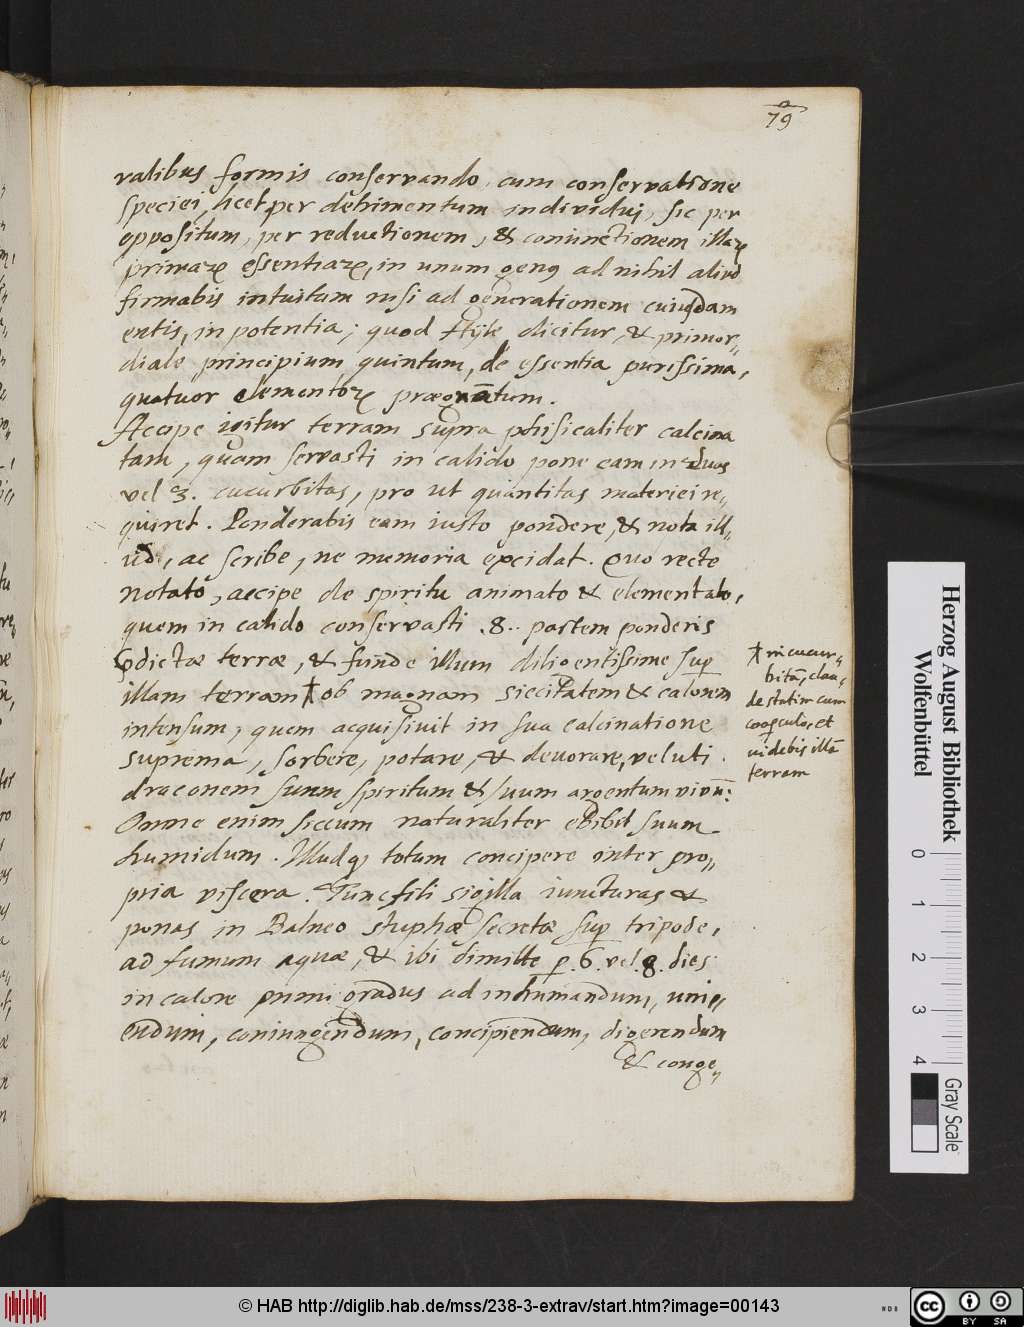 79
ralibus formis conservando, cum conservatione
speciei, licet per detrimentum individui, sic per
oppositum, per reductionem, & coniunctionem illaꝝ
primaꝝ essentiaꝝ, in unum genus ad nihil aliud
firmabis intuitum nisi ad generationem cuiusdam
entis, in potentia; quod Hyle dicitur, & primor,,
diale principium quintum, de essentia purissima,
quatuor elementoꝝ prægnātum.
Accipe igitur terram supra phisicaliter calcina
tam, quam servasti in calido pone eam in duas
vel 3. cucurbitas, pro ut quantitas materiei re,,
quiret. Ponderabis eam iusto pondere, & nota ill,,
ud, ac scribe, ne memoria excidat. Quo recte
notato, accipe de spiritu animato & elementato,
quem in calido conservasti .8.. partem ponderis
p̄dictæ terræ, & funde illum diligentissime suꝑ
illam terram † ob magnam siccitatem & calorem
intensum, quem acquisivit in sua calcinatione
suprema, sorbere, potare, & devorare, veluti
draconem suum spiritum & suum argentum vivū:
Omne enim siccum naturaliter ebibit suum
humidum. Illudqꝫ totum concipere inter pro,,
pria viscera. Tunc fili sigilla iuncturas &
ponas in Balneo stuphæ secretæ suꝑ tripode,
ad fumum aquæ, & ibi dimitte ꝑ .6. vel .8. dies
in calore primi gradus ad inhumandum, uni,,
endum, coniungendum, concipiendum, digerendum
& conge,,
† in cucur,,
bitā, clau,,
de statim cum
cooꝑculo, et
videbis illā
terram
Herzog August Bibliothek
Wolfenbüttel
0 1 2 3 4
Gray Scale
© HAB http://diglib.hab.de/mss/238-3-extrav/start.htm?image=00143
NDB
cc BY SA